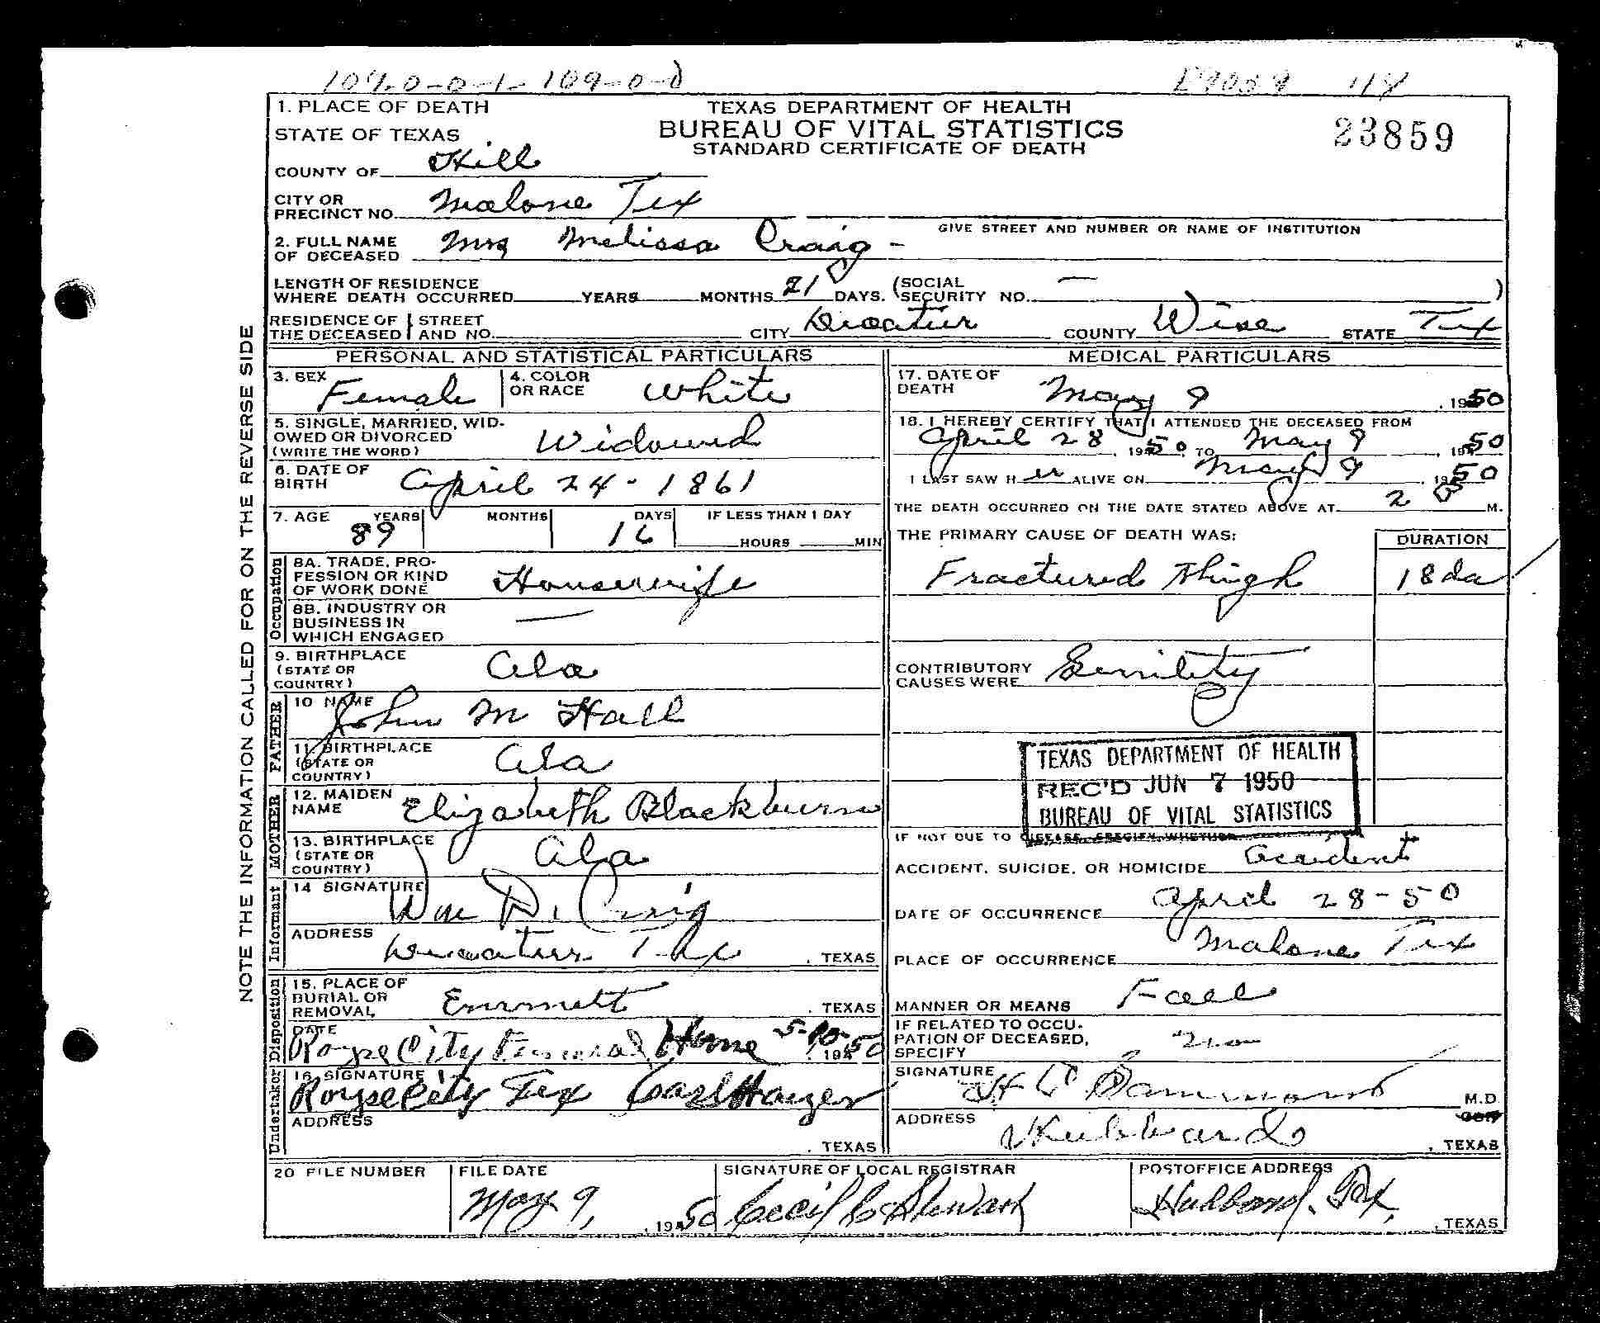 107-0-0-1-109-0-0
1. PLACE OF DEATH
STATE OF TEXAS
COUNTY OF Hill
TEXAS DEPARTMENT OF HEALTH
BUREAU OF VITAL STATISTICS
STANDARD CERTIFICATE OF DEATH
23859
CITY OR
PRECINCT NO. Malone Tex
GIVE STREET AND NUMBER OR NAME OF INSTITUTION
2. FULL NAME
OF DECEASED Mrs Melissa Craig -
LENGTH OF RESIDENCE
WHERE DEATH OCCURRED YEARS MONTHS 21 DAYS. (SOCIAL
SECURITY NO. — )
RESIDENCE OF THE DECEASED STREET AND NO. CITY Decatur COUNTY Wise STATE Tex
NOTE THE INFORMATION CALLED FOR ON THE REVERSE SIDE
PERSONAL AND STATISTICAL PARTICULARS
3. SEX Female 4. COLOR OR RACE White
5. SINGLE, MARRIED, WID-
OWED OR DIVORCED
(WRITE THE WORD) Widowed
6. DATE OF
BIRTH April 24 - 1861
7. AGE YEARS 89 MONTHS DAYS 16 IF LESS THAN 1 DAY
HOURS MIN
Occupation
8A. TRADE, PRO-
FESSION OR KIND
OF WORK DONE Housewife
8B. INDUSTRY OR
BUSINESS IN
WHICH ENGAGED —
9. BIRTHPLACE
(STATE OR
COUNTRY) Ala
FATHER
10 NAME John M Hall
11. BIRTHPLACE
(STATE OR
COUNTRY) Ala
MOTHER
12. MAIDEN
NAME Elizabeth Blackburn
13. BIRTHPLACE
(STATE OR
COUNTRY) Ala
Informant
14 SIGNATURE Wm D. Craig
ADDRESS Decatur Tex , TEXAS
Disposition
15. PLACE OF
BURIAL OR
REMOVAL Emmett , TEXAS
DATE Royse City Funeral Home 5-10- 1950
Undertaker
16. SIGNATURE Royse City Tex Carl
ADDRESS
, TEXAS
MEDICAL PARTICULARS
17. DATE OF
DEATH May 9 , 1950
18. I HEREBY CERTIFY THAT I ATTENDED THE DECEASED FROM
April 28 , 1950 TO May 9 , 1950
I LAST SAW H er ALIVE ON May 9 1950
THE DEATH OCCURRED ON THE DATE STATED ABOVE AT 2 P M.
THE PRIMARY CAUSE OF DEATH WAS: DURATION
Fractured Thigh 18 da
CONTRIBUTORY
CAUSES WERE Senility
TEXAS DEPARTMENT OF HEALTH
REC'D JUN 7 1950
BUREAU OF VITAL STATISTICS
IF NOT DUE TO DISEASE, SPECIFY WHETHER
ACCIDENT, SUICIDE, OR HOMICIDE Accident
DATE OF OCCURRENCE April 28-50
PLACE OF OCCURRENCE Malone Tex
MANNER OR MEANS Fall
IF RELATED TO OCCU-
PATION OF DECEASED,
SPECIFY no
SIGNATURE M.D.
ADDRESS Hubbard , TEXAS
20 FILE NUMBER
FILE DATE May 9, , 1950
SIGNATURE OF LOCAL REGISTRAR Cecil C Stewart
POSTOFFICE ADDRESS Hubbard, Tex, , TEXAS